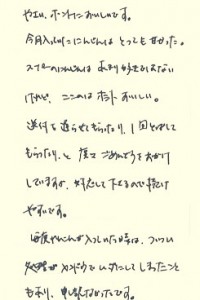 やさい、ホントにおいしいです。
今月入ったにんじんは とっても 甘かった。
スーパーのにんじんは あまり好きではない
けれど、ここのは ホント おいしい。
送付を遅らせてもらったり、1回とばして
もらったり、と 度々 ごめんどうをおかけ
していますが、対応して下さるので続け
やすいです。
毎度 が入っていた時は、ついつい
処理が カンタンで してしまったこと
もあり、申し訳なかったです。